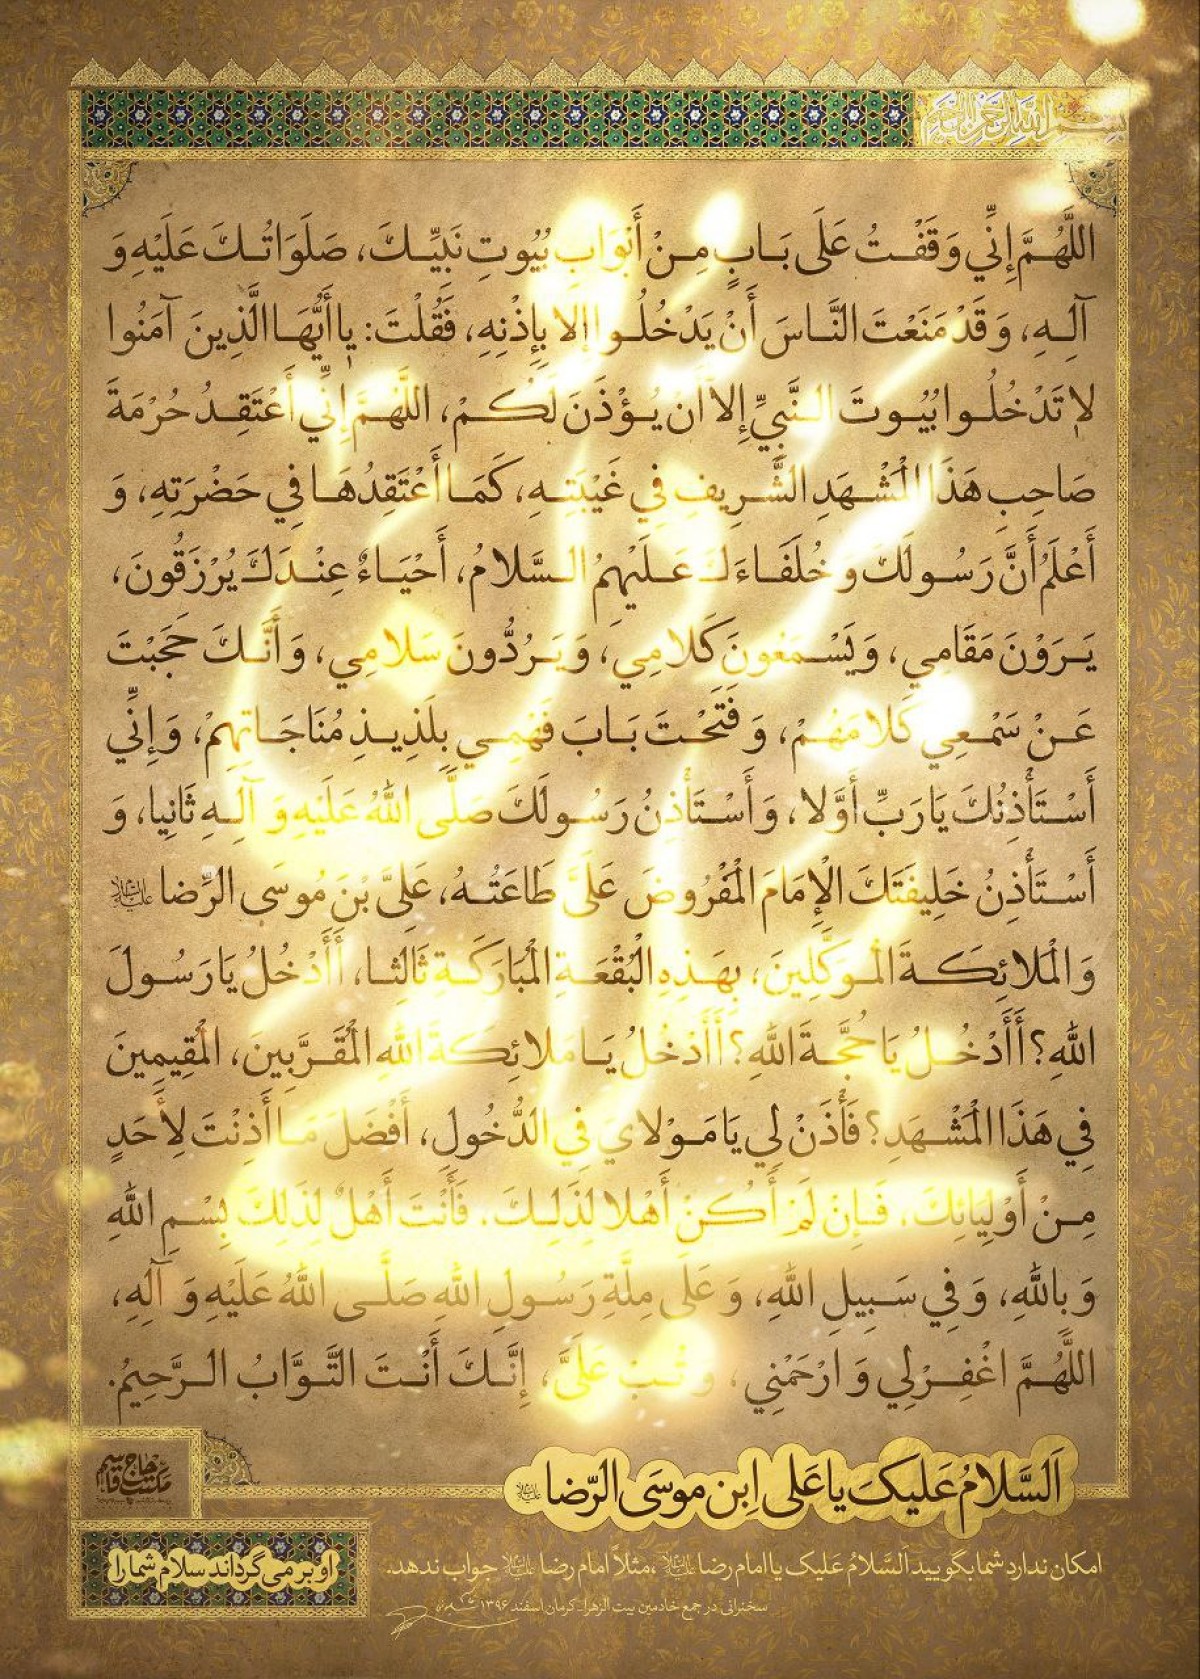 بسم الله الرحمن الرحیم
اللَّهُمَّ إِنِّي وَقَفْتُ عَلَى بَابٍ مِنْ أَبْوَابِ بُيُوتِ نَبِيِّكَ، صَلَوَاتُكَ عَلَيْهِ وَ
آلِهِ، وَ قَدْ مَنَعْتَ النَّاسَ أَنْ يَدْخُلُوا إِلا بِإِذْنِهِ، فَقُلْتَ: يا أَيُّهَا الَّذِينَ آمَنُوا
لا تَدْخُلُوا بُيُوتَ النَّبِيِّ إِلا أَنْ يُؤْذَنَ لَكُمْ، اللَّهُمَّ إِنِّي أَعْتَقِدُ حُرْمَةَ
صَاحِبِ هَذَا الْمَشْهَدِ الشَّرِيفِ فِي غَيْبَتِهِ، كَمَا أَعْتَقِدُهَا فِي حَضْرَتِهِ، وَ
أَعْلَمُ أَنَّ رَسُولَكَ وَ خُلَفَاءَكَ عَلَيْهِمُ السَّلامُ، أَحْيَاءٌ عِنْدَكَ يُرْزَقُونَ،
يَرَوْنَ مَقَامِي، وَ يَسْمَعُونَ كَلامِي، وَ يَرُدُّونَ سَلامِي، وَ أَنَّكَ حَجَبْتَ
عَنْ سَمْعِي كَلامَهُمْ، وَ فَتَحْتَ بَابَ فَهْمِي بِلَذِيذِ مُنَاجَاتِهِمْ، وَ إِنِّي
أَسْتَأْذِنُكَ يَا رَبِّ أَوَّلا، وَ أَسْتَأْذِنُ رَسُولَكَ صَلَّى اللَّهُ عَلَيْهِ وَ آلِهِ ثَانِيا، وَ
أَسْتَأْذِنُ خَلِيفَتَكَ الْإِمَامَ الْمَفْرُوضَ عَلَيَّ طَاعَتُهُ، عَلِيَّ بْنَ مُوسَى الرِّضا علیه السلام
وَ الْمَلائِكَةَ الْمُوَكَّلِينَ، بِهَذِهِ الْبُقْعَةِ الْمُبَارَكَةِ ثَالِثا، أَأَدْخُلُ يَا رَسُولَ
اللَّهِ؟ أَأَدْخُلُ يَا حُجَّةَ اللَّهِ؟ أَأَدْخُلُ يَا مَلائِكَةَ اللَّهِ الْمُقَرَّبِينَ، الْمُقِيمِينَ
فِي هَذَا الْمَشْهَدِ؟ فَأْذَنْ لِي يَا مَوْلايَ فِي الدُّخُولِ، أَفْضَلَ مَا أَذِنْتَ لِأَحَدٍ
مِنْ أَوْلِيَائِكَ، فَإِنْ لَمْ أَكُنْ أَهْلا لِذَلِكَ، فَأَنْتَ أَهْلٌ لِذَلِكَ بِسْمِ اللَّهِ
وَ بِاللَّهِ، وَ فِي سَبِيلِ اللَّهِ، وَ عَلَى مِلَّةِ رَسُولِ اللَّهِ صَلَّى اللَّهُ عَلَيْهِ وَ آلِهِ،
اللَّهُمَّ اغْفِرْ لِي وَ ارْحَمْنِي، وَ تُبْ عَلَيَّ، إِنَّكَ أَنْتَ التَّوَّابُ الرَّحِيمُ.
مکتب حاج قاسم
اَلسَّلامُ عَلَیکَ یا عَلی اِبن موسَی الرّضا علیه السلام
امکان ندارد شما بگویید اَلسَّلامُ عَلَیک یا امام رضا علیه السلام، مثلاً امام رضا علیه السلام جواب ندهد.
او بر می گرداند سلام شما را
سخنرانی در جمع خادمین بیت الزهرا، کرمان اسفند ۱۳۹۶